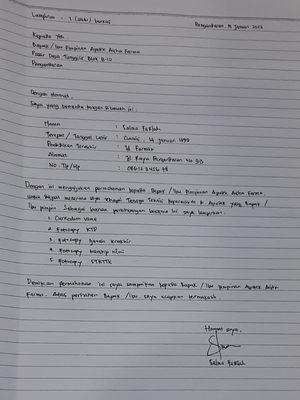 Lampiran : 1 (satu) berkas
Pangandaran, 16 Januari 2022
Kepada Yth
Bapak / Ibu Pimpinan Apotek Aisha Farma
Pasar Desa Blok B-10
Pangandaran
Dengan Hormat,
Saya yang bertanda tangan dibawah ini :
Nama : Salma
Tempat / Tanggal Lahir : Ciamis, 14 Januari 1999
Pendidikan Terakhir : D3 Farmasi
Alamat : Jl. Raya Pangandaran No
No. Tlp / Hp :
Dengan ini mengajukan permohonan kepada Bapak / Ibu Pimpinan Apotek Aisha Farma.
untuk dapat menerima saya Tenaga Teknis Kefarmasian di Apotek yang Bapak /
Ibu pimpin. Sebagai bahan pertimbangan bersama ini saya lampirkan :
1. Curriculum Vitae
2. Fotocopy KTP
3. Fotocopy Ijazah terakhir
4. Fotocopy transkrip nilai
5. Fotocopy STRTTK
Demikian permohonan ini saya sampaikan kepada Bapak / Ibu Pimpinan Apotek Aisha
Farma. Atas perhatian Bapak / Ibu, saya ucapkan terimakasih.
Hormat saya,
Salma